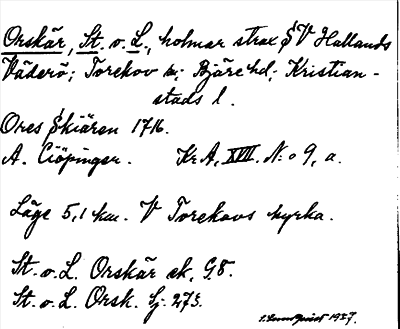 Orskär, St. o. L., holmar strax SV Hallands
Väderö; Torekov sn; Bjäre hd; Kristian-
stads l.
Ores Skiären 1716.
A. Ciöpinger. Kr A, XVII. N:o 9, a.
Läge 5,1 km. V Torekovs kyrka.
St. o. L. Orskär ek. G8.
St. o. L. Orsk. Sj. 273.
1927.